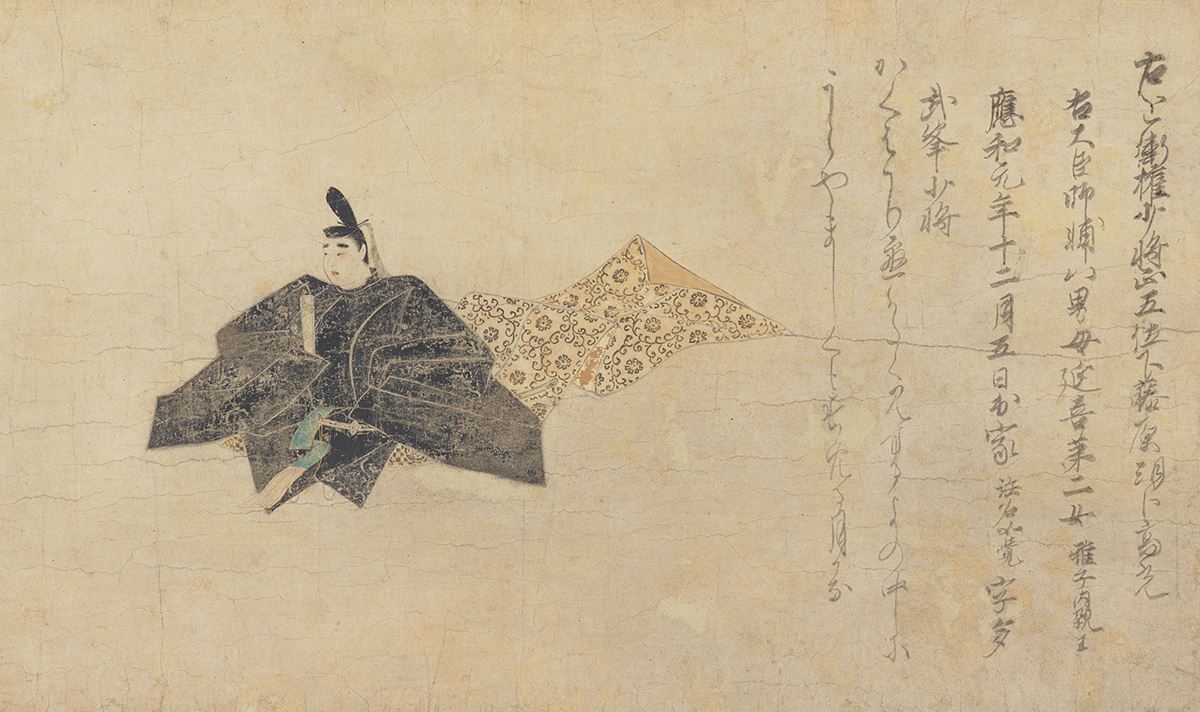 右近衛権少将正五位下藤原朝臣高光
右大臣師輔八男母延喜第二女 雅子内親王
應和元年十二月五日出家 法名如覚 字多
武峯少将
かくはかりへかたく見ゆるよの中に
うらやましくもすめる月かな